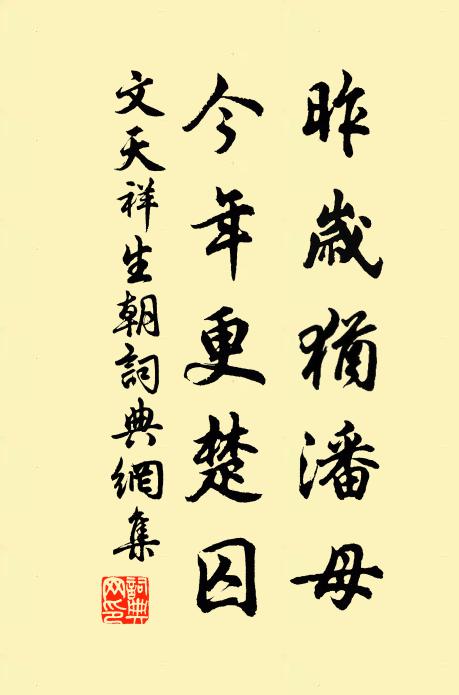 昨歲猶潘母
今年更楚囚
文天祥生朝詞典網集
詞典网印